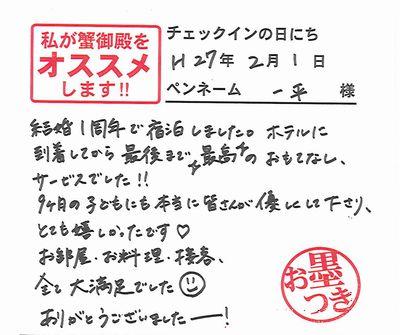 私が蟹御殿を
オススメ
します!!
チェックインの日にち
H27年 2月 1日
ペンネーム 一平 様
結婚1周年で宿泊しました。ホテルに
到着してから最後まで"最高"のおもてなし、
サービスでした!!
9ヶ月の子どもにも本当に皆さんが優しくして下さり、
とても嬉しかったです♡
お部屋・お料理・接客、
全て大満足でした☺
ありがとうございましたーー!
お墨つき